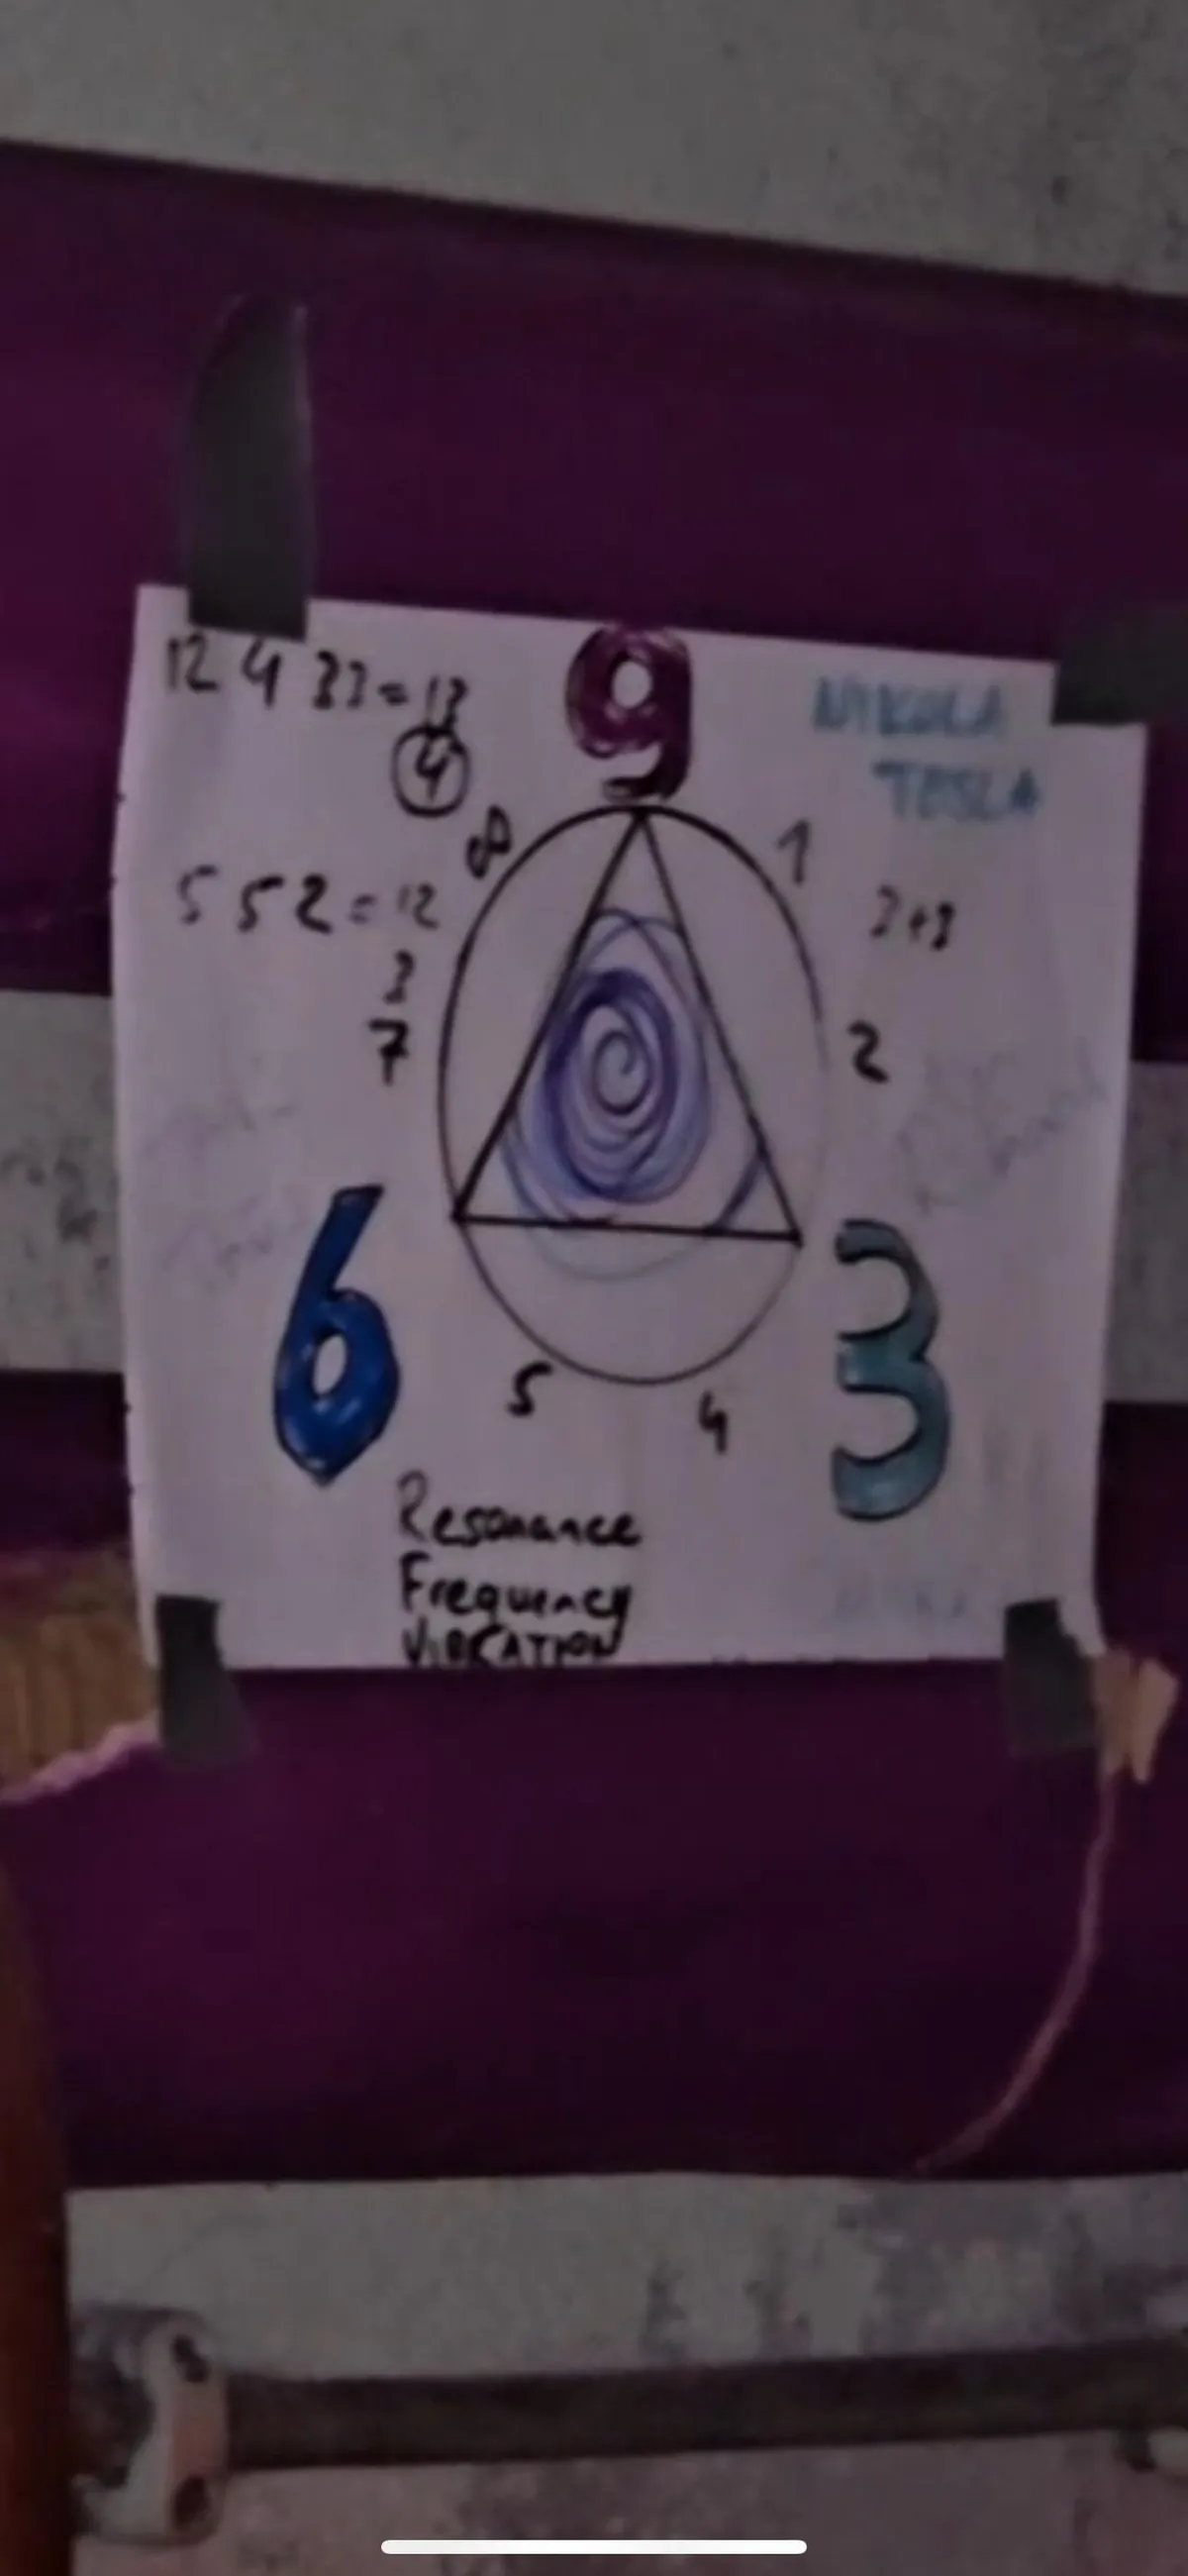 12 4 33 = 13
4
9
NIKOLA
TESLA
8
1
5 5 2 = 12
3+3
3
7
2
6
3
5
4
Resonance
Frequency
VIBRATION